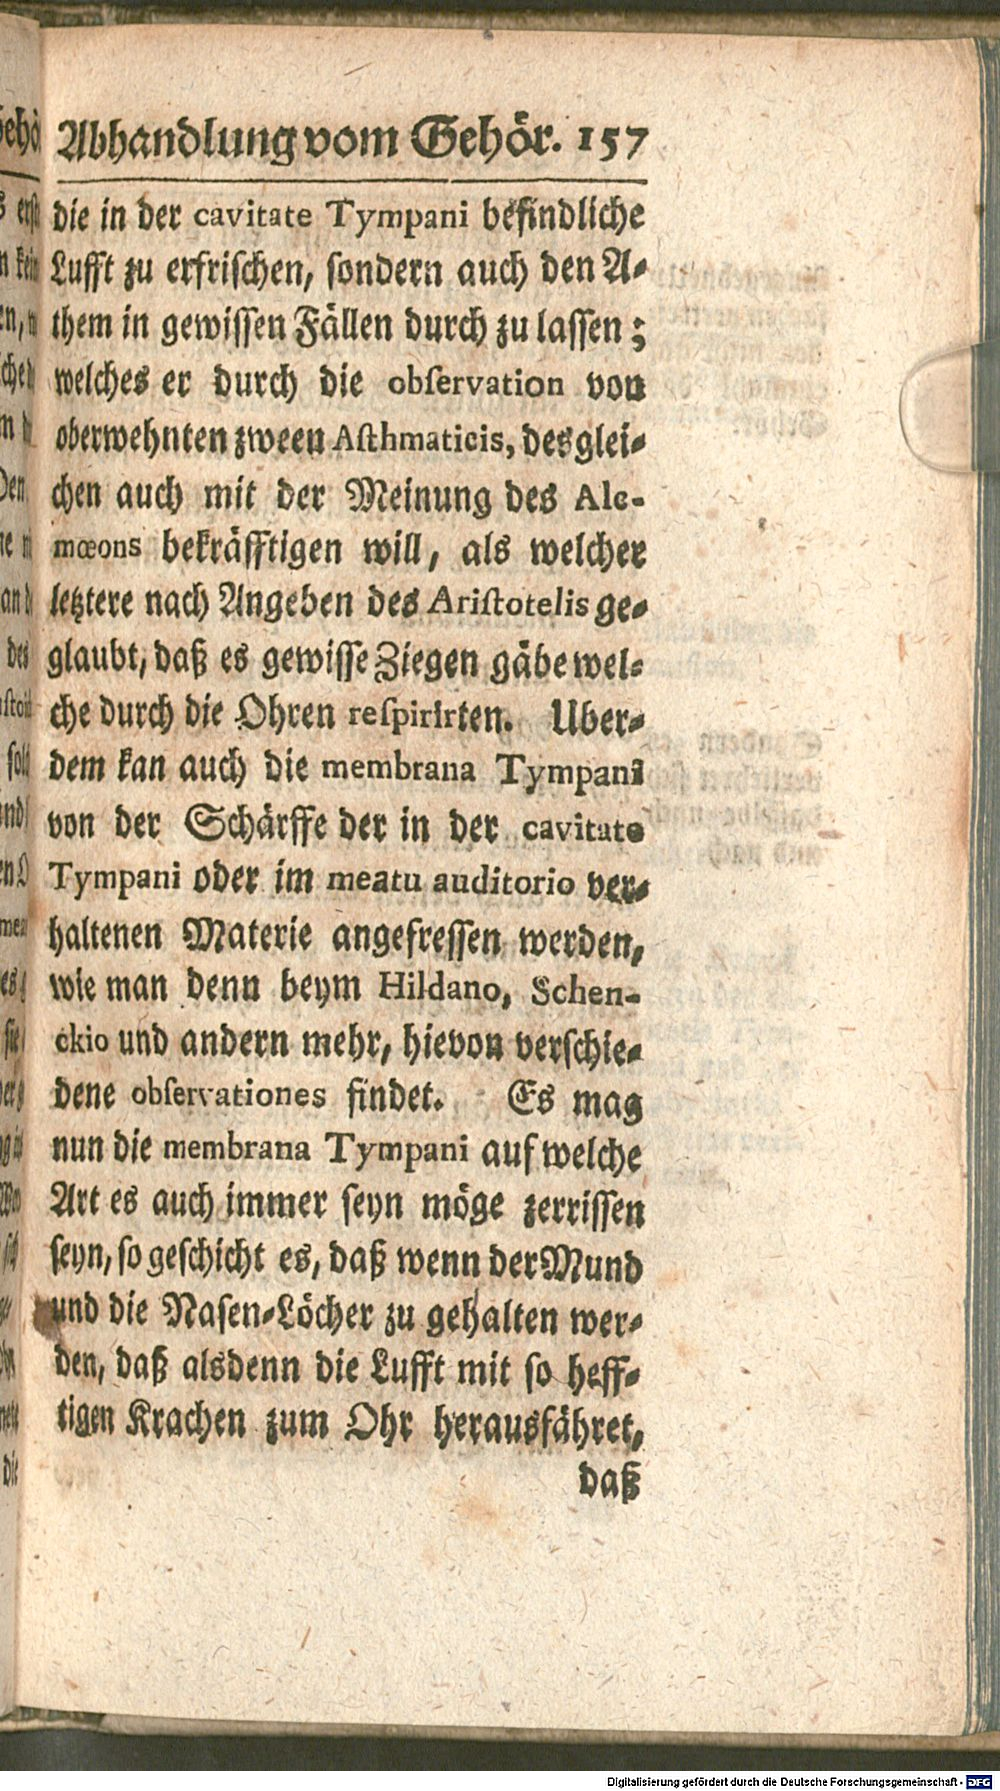 Abhandlung vom Gehör. 157
die in der cavitate Tympani befindliche
Lufft zu erfrischen, sondern auch den A-
them in gewissen Fällen durch zu lassen;
welches er durch die obſervation von
oberwehnten zween Aſthmaticis, desglei-
chen auch mit der Meinung des Alc-
mœons bekräfftigen will, als welcher
letztere nach Angeben des Ariſtotelis ge-
glaubt, daß es gewisse Ziegen gäbe wel-
che durch die Ohren reſpirirten. Uber-
dem kan auch die membrana Tympani
von der Schärffe der in der cavitate
Tympani oder im meatu auditorio ver-
haltenen Materie angefressen werden,
wie man denn beym Hildano, Schen-
ckio und andern mehr, hievon verschie-
dene obſervationes findet. Es mag
nun die membrana Tympani auf welche
Art es auch immer seyn möge zerrissen
seyn, so geschicht es, daß wenn der Mund
und die Nasen-Löcher zu gehalten wer-
den, daß alsdenn die Lufft mit so heff-
tigen Krachen zum Ohr herausfähret,
daß
Digitalisierung gefördert durch die Deutsche Forschungsgemeinschaft - DFG